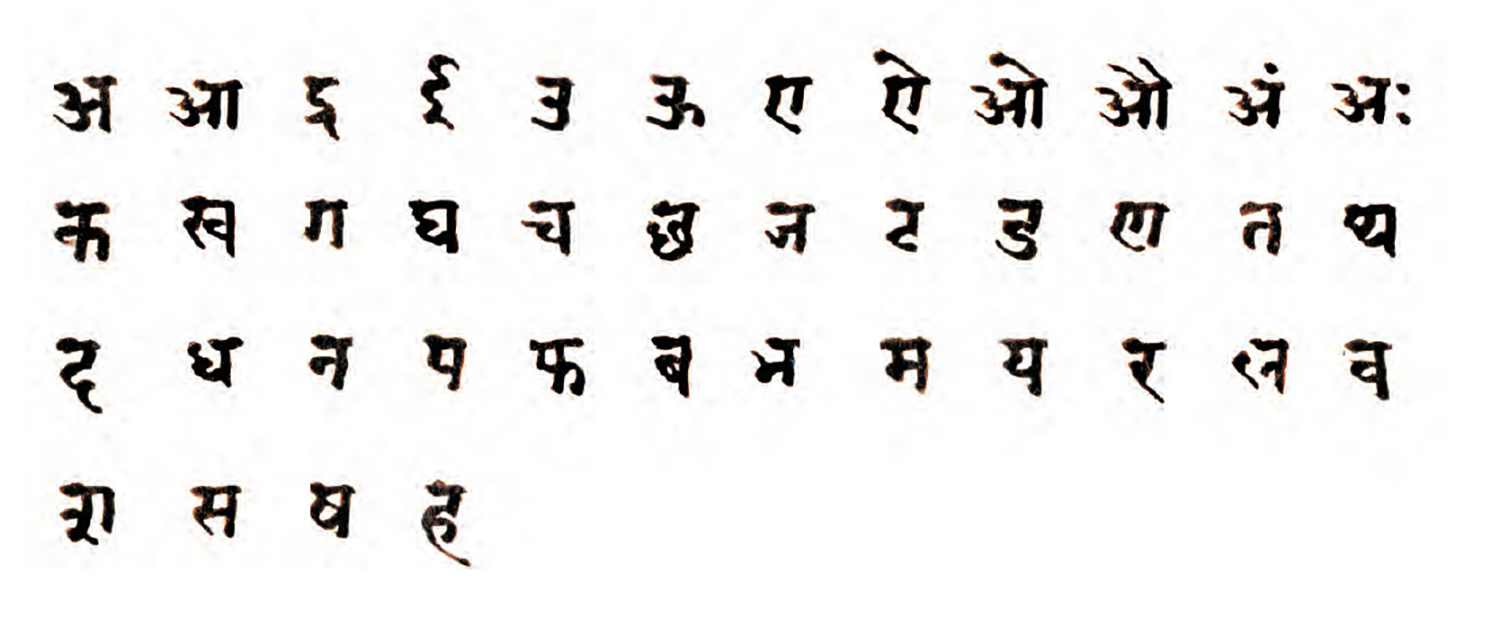 अ आ इ ई उ ऊ ए ऐ ओ औ अं अः
क ख ग घ च छ ज ट ड ण त थ
द ध न प फ ब भ म य र ल व
श स ष ह